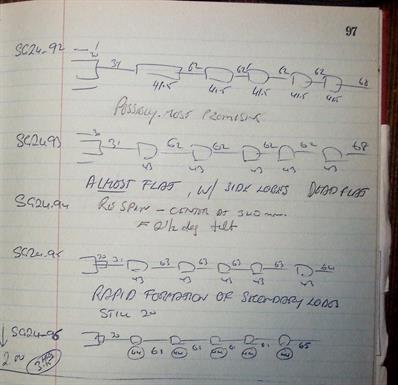 97
SG24-92
31 62 62 62 62 68
41.5 41.5 41.5 41.5 41.5
POSSIBLY MOST PROMISING
SG2493
31 62 62 62 62 68
43 43 43 43 43
ALMOST FLAT, W/ SIDE LOBES DEAD FLAT
SG24.94 RE SPIN - CENTER AT 340 mm
= 2 1/2 deg tilt
SG24-95
20 31 63 63 63 63 64
43 43 43 43 43
RAPID FORMATION OF SECONDARY LOBES
STILL 20
SG24-96
20 61 61 61 61 65
44 44 44 44 44
2.00